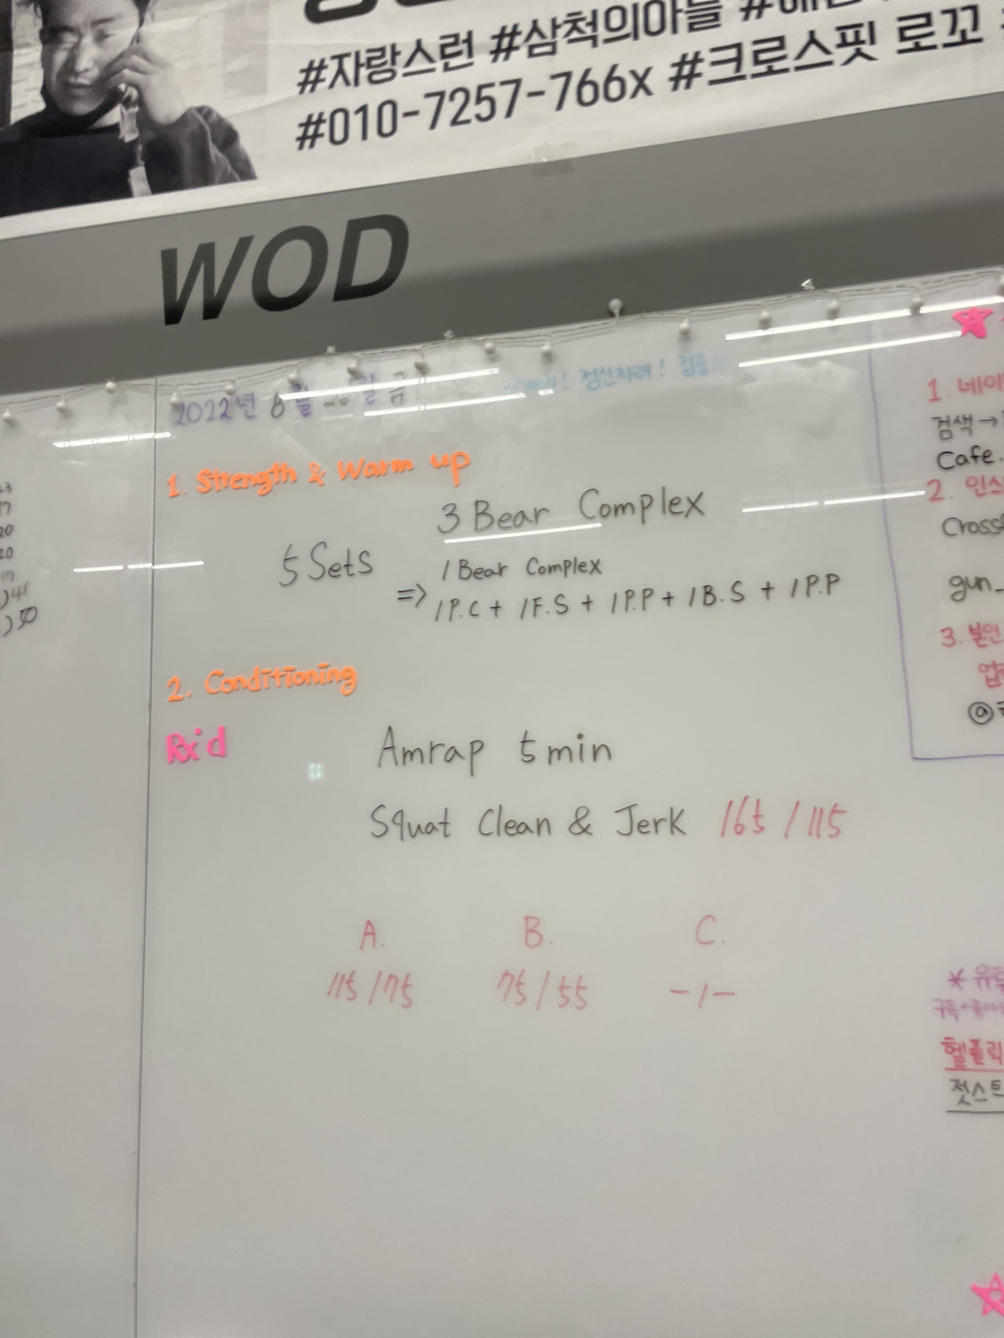 #자랑스런 #삼척의아들
#010-7257-766x #크로스핏 로꼬
WOD
2022년 8월 26일 금
정신차려! 집중!!
1. Strength & Warm up
3 Bear Complex
5 Sets
1 Bear Complex
=> 1P.C + 1F.S + 1P.P + 1B.S + 1P.P
2. Conditioning
Rx'd
Amrap 5min
Squat Clean & Jerk 165 / 115
A. B. C.
115 / 75 75 / 55 - / -
20
20
17
)41
)50
1. 네이
검색 →
Cafe.
2. 인스
Cross
gun_
3. 본인
업
@
* 유
헬플릭
젓스트